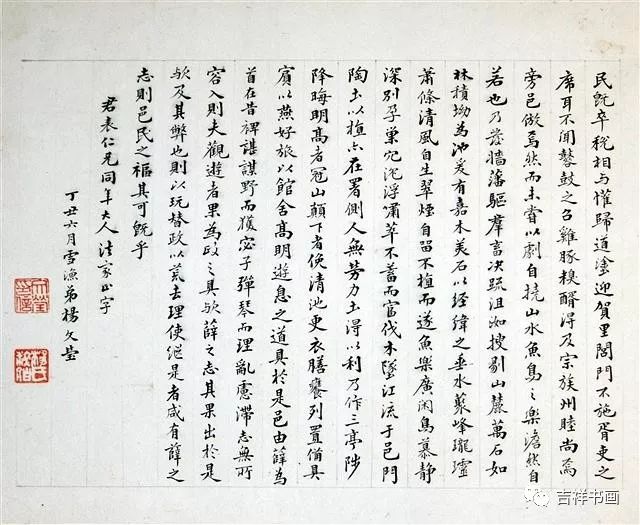 民既卒稅相與懽歸道塗迎賀里閭門不施胥吏之
席耳不聞鼛鼓之召雞豚糗醑得及宗族州睦尚焉
旁邑倣焉然而未嘗以劇自撓山水魚鳥之樂澹然自
若也乃發牆藩驅羣畜決疏沮洳搜剔山麓萬石如
林積坳為池爰有嘉木美石以經緯之垂水藂峰瓏璁
蕭條清風自生翠煙自留不植而遂魚樂廣閑鳥慕靜
深別孕巢穴沉浮嘯萃不蓄而富伐木墜江流于邑門
陶土以埴亦在署側人無勞力土得以利乃作三亭陟
降晦明高者冠山顛下者俯清池更衣膳饔列置備具
賓以燕好旅以館舍高明遊息之道具於是邑由薛為
首在昔裨諶謀野而獲宓子彈琴而理亂慮滯志無所
容入則夫觀遊者果為政之具歟薛之志其果出於是
歟及其弊也則以玩替政以荒去理使繼是者咸有薛之
志則邑民之福其可既乎
君表仁兄同年大人法家正字
丁丑六月雪漁弟楊文瑩
吉祥书画